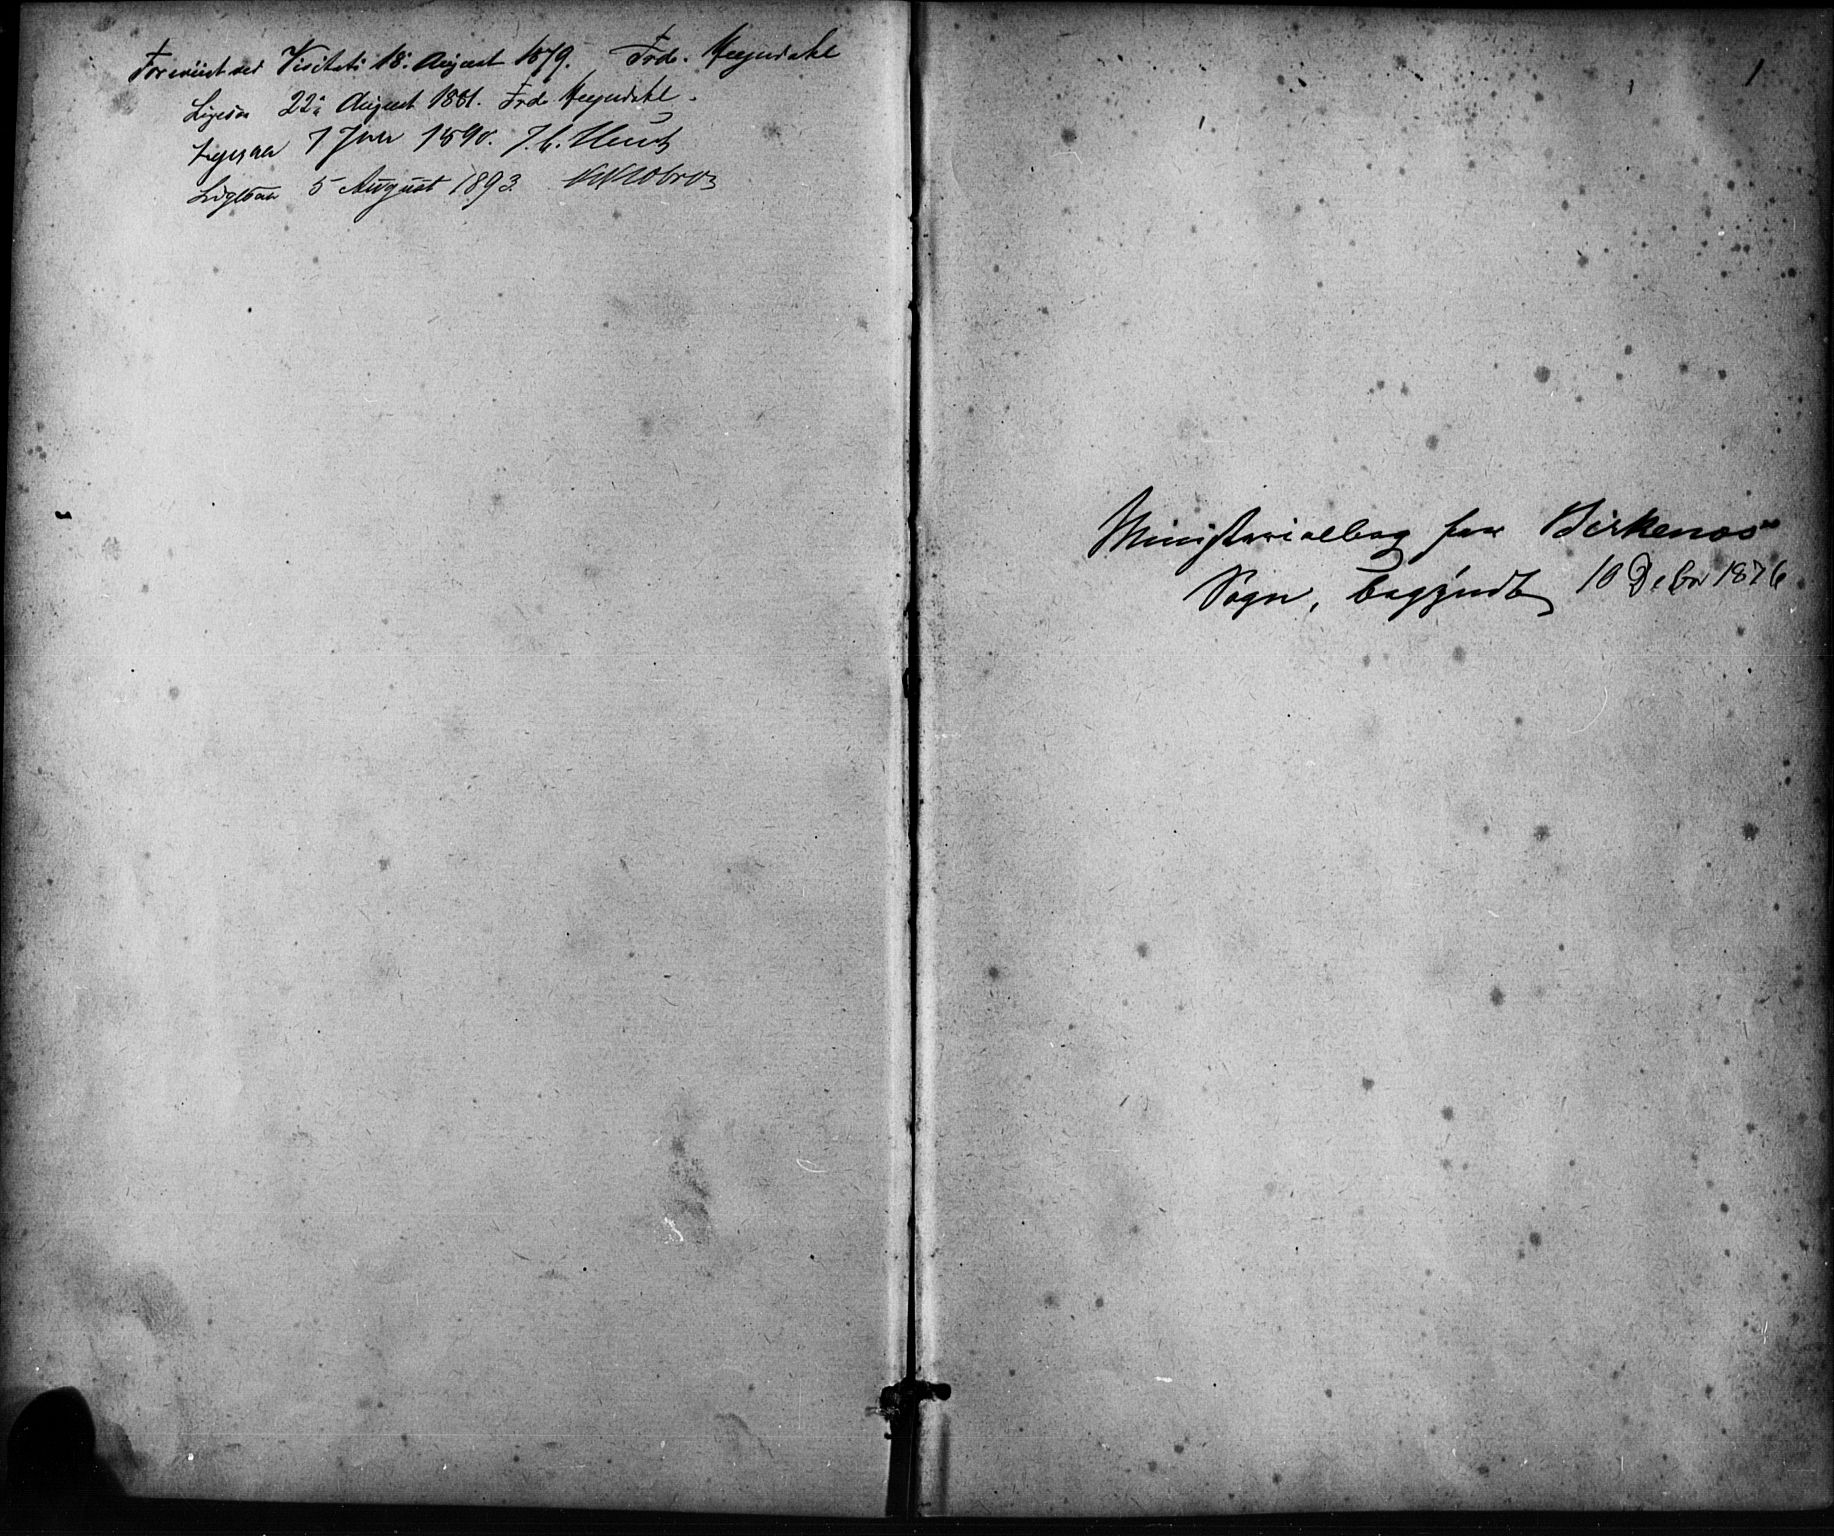 Foreviist ved Visitats 18. August 1879. Frdr. Heyerdahl
Ligesaa 22: August 1881. Frdr Heyerdahl.
Ligesaa 7 Juni 1890. J. C. Heuch
Ligesaa 5 August 1893
1
Ministerialbog for Birkenæs
Sogn, begyndt 10 Decbr 1876